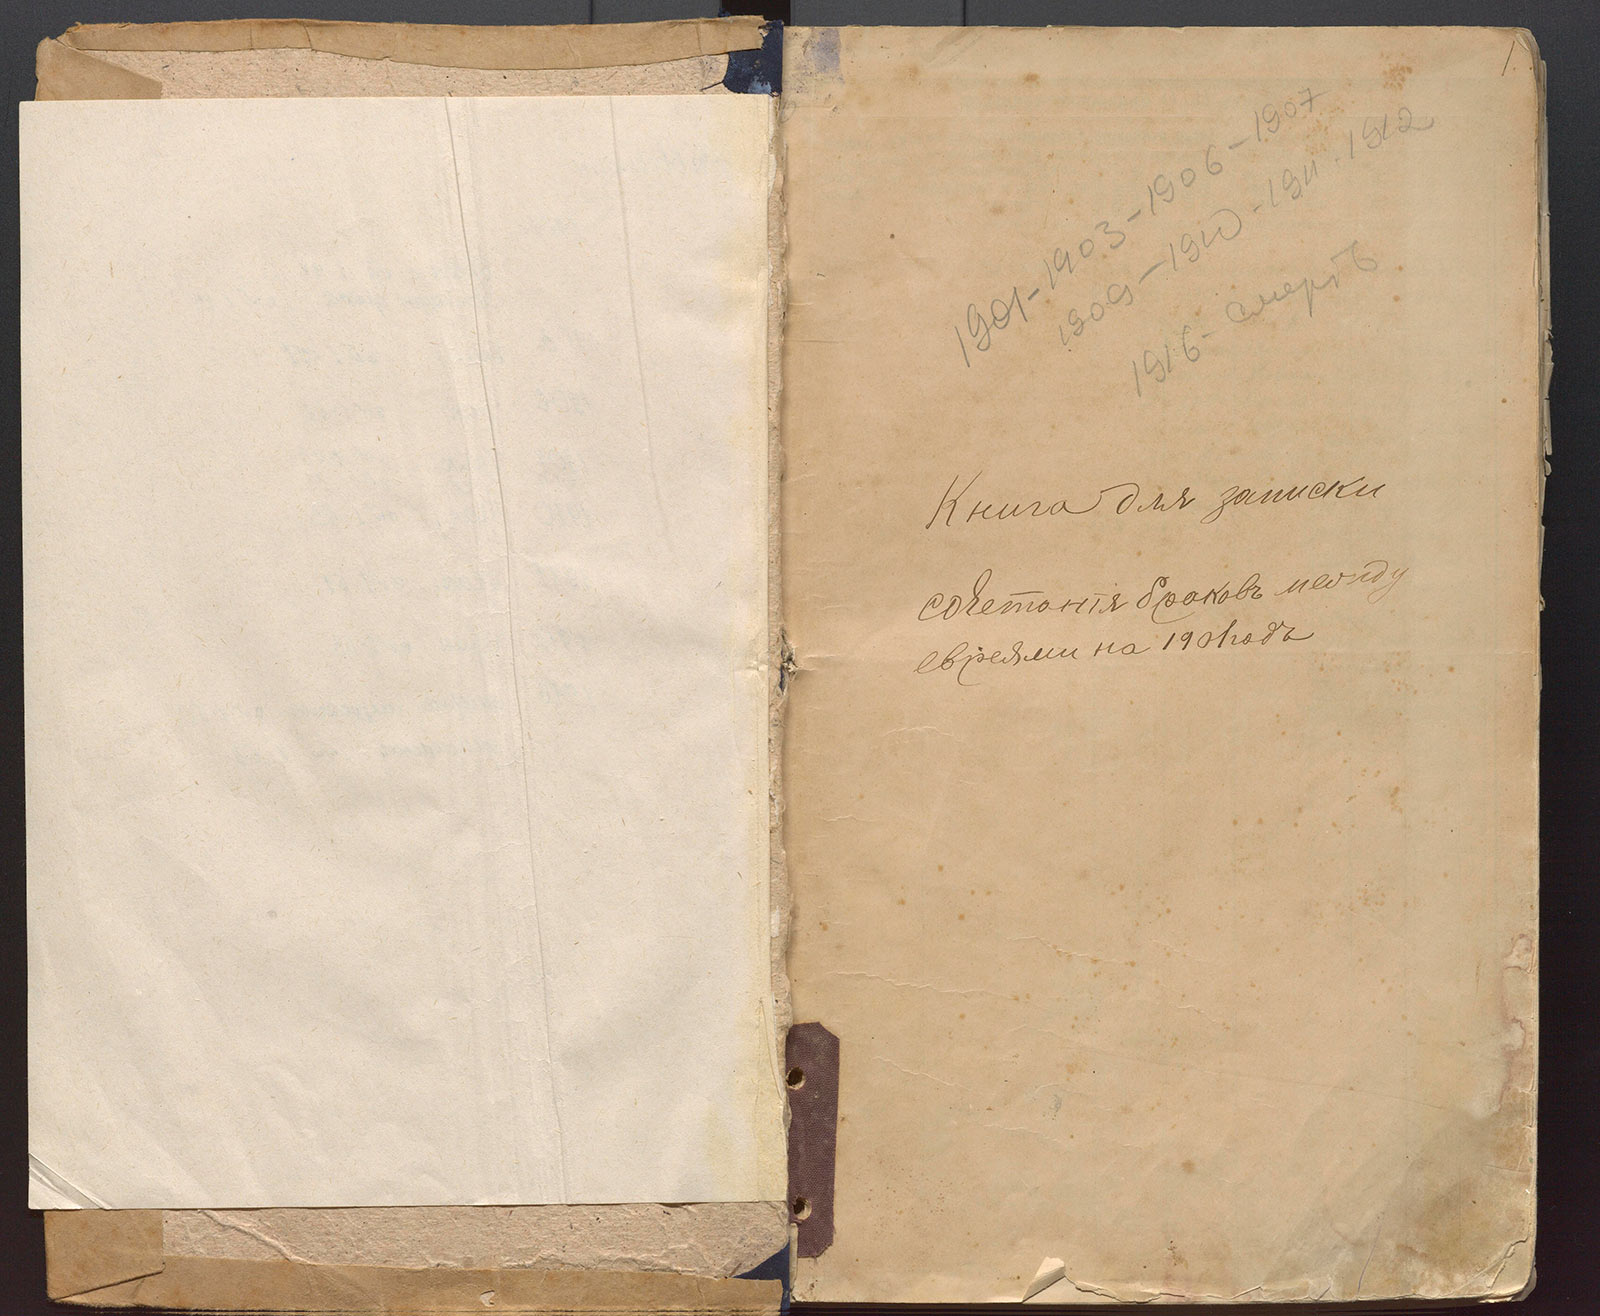 1
1901-1903-1906-1907
1909-1910-1911-1912
1916-смерть
Книга для записки
сочетанія браковъ между
евреями на 1901 годъ